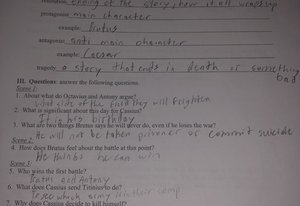 resolution: ending of the story, how it all wraps up
protagonist: main character
example: Brutus
antagonist: anti main character
example: Caesar
tragedy: a story that ends in death or something bad
III. Questions: answer the following questions.
Scene 1:
1. About what do Octavius and Antony argue?
what side of the field they will fight on
2. What is significant about this day for Cassius?
It is his birthday
3. What are two things Brutus says he will never do, even if he loses the war?
He will not be taken prisoner or commit suicide
Scene 2:
4. How does Brutus feel about the battle at this point?
He thinks he can win
Scene 3:
5. Who wins the first battle?
Brutus and Antony
6. What does Cassius send Titinius to do?
to see which army is their camp
7. Why does Cassius decide to kill himself?